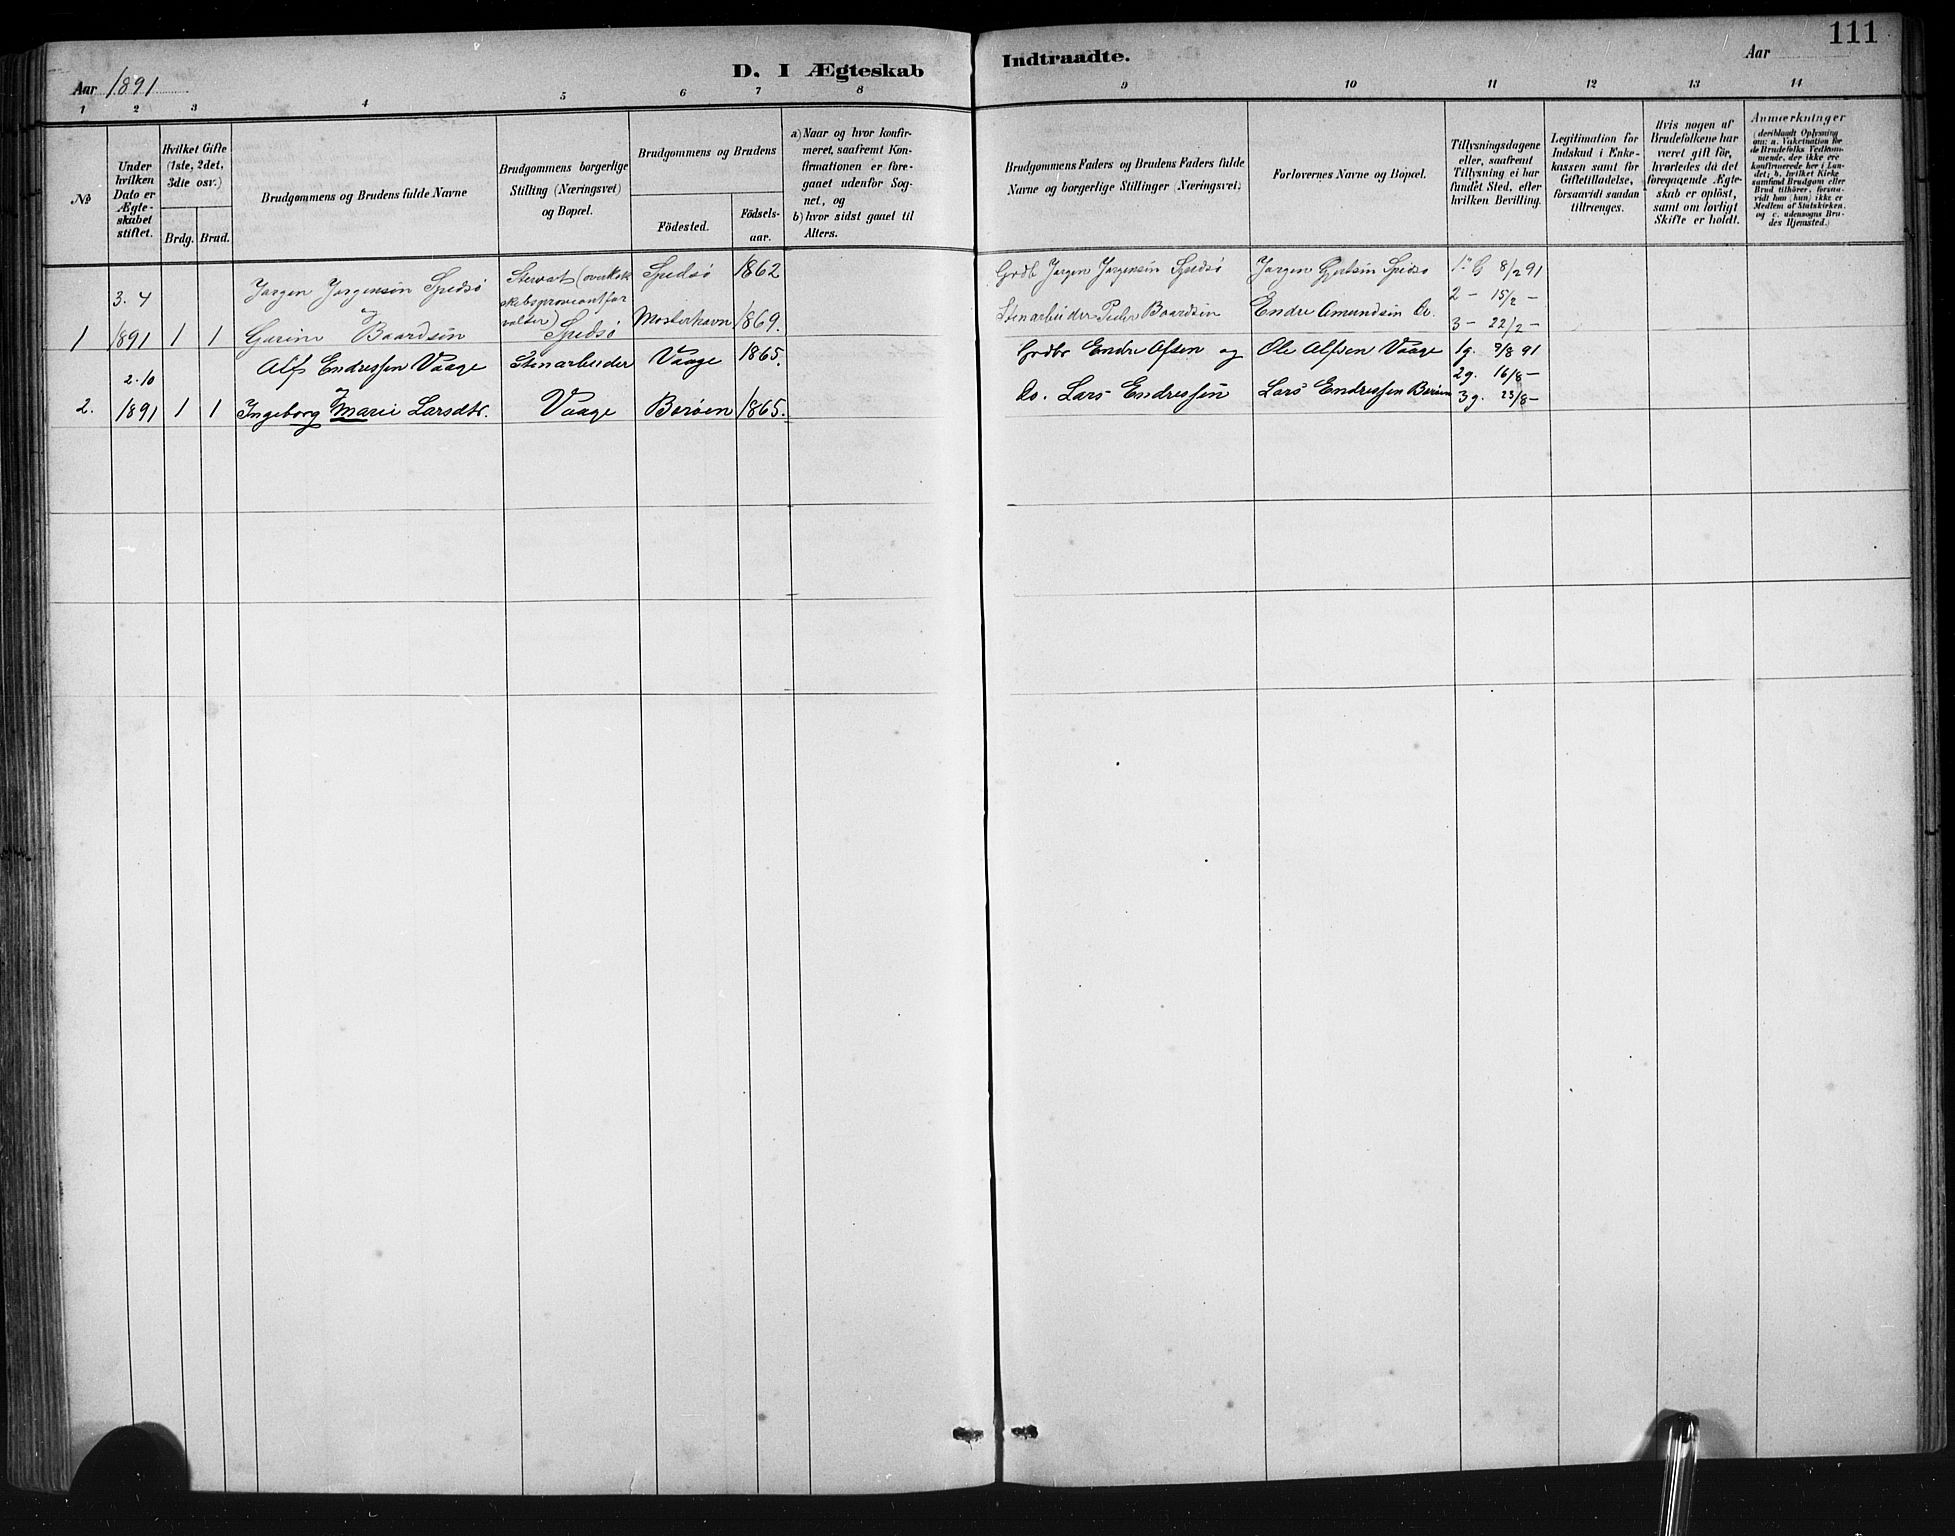 111
Aar 1891
D. I Ægteskab
Indtraadte.
Aar
1 2 3 4 5 6 7 8 9 10 11 12 13 14
No
Under
hvilken
Dato er
Ægte-
skabet
stiftet.
Hvilket Gifte
(1ste, 2det,
3die osv.)
Brdg. Brud.
Brudgommens og Brudens fulde Navne
Brudgommens borgerlige
Stilling (Næringsvei)
og Bopæl.
Brudgommens og Brudens
Födested.
Födsels-
aar.
a) Naar og hvor konfir-
meret, saafremt Kon-
firmationen er fore-
gaaet udenfor Sog-
net, og
b) hvor sidst gaaet til
Alters.
Brudgommens Faders og Brudens Faders fulde
Navne og borgerlige Stillinger (Næringsvei)
Forlovernes Navne og Bopæl.
Tillysningsdagene
eller, saafremt
Tillysning ei har
fundet Sted, efter
hvilken Bevilling.
Legitimation for
Indskud i Enke-
kassen samt for
Giftetilladelse,
forsaavidt saadan
tiltrænges.
Hvis nogen af
Brudefolkene har
været gift för,
hvorledes da det
foregaaende Ægte-
skab er oplöst,
samt om lovligt
Skifte er holdt.
Anmærkninger
(deriblandt Oplysning
om: a. Vakcination for
de Brudefolks Vedkom-
mende, der ikke ere
konfirmerede her i Lan-
det; b. hvilket Kirke-
samfund Brudgom eller
Brud tilhörer, forsaa-
vidt han (hun) ikke er
Medlem af Statskirken,
og c. udensogns Bru-
des Hjemsted.)
3. 4 Jørgen Jørgensen Spedsø Stevart (overkok Spedsø 1862 Grdb Jørgen Jørgensen Spedsø Jørgen Gjertsen Spedsø 1. G 8/2 91
og skibsproviantfor 2 - 15/2 -
1 1891 1 1 Gurine Baardsen valter) Spedsø Mosterhavn 1869. Stenarbeider Peder Baardsen Endre Amundsen Do. 3 - 22/2 -
Alf Endressen Vaage Stenarbeider Vaage 1865. Grdbr Endre Alfsen og Ole Alfsen Vaage 1g. 9/8 91
2.10 og 2g. 16/8 -
2. 1891 1 1 Ingeborg Marie Larsdtr. Vaage Berøen 1865. Do. Lars Endressen Lars Endressen Berøen 3g. 23/8 -